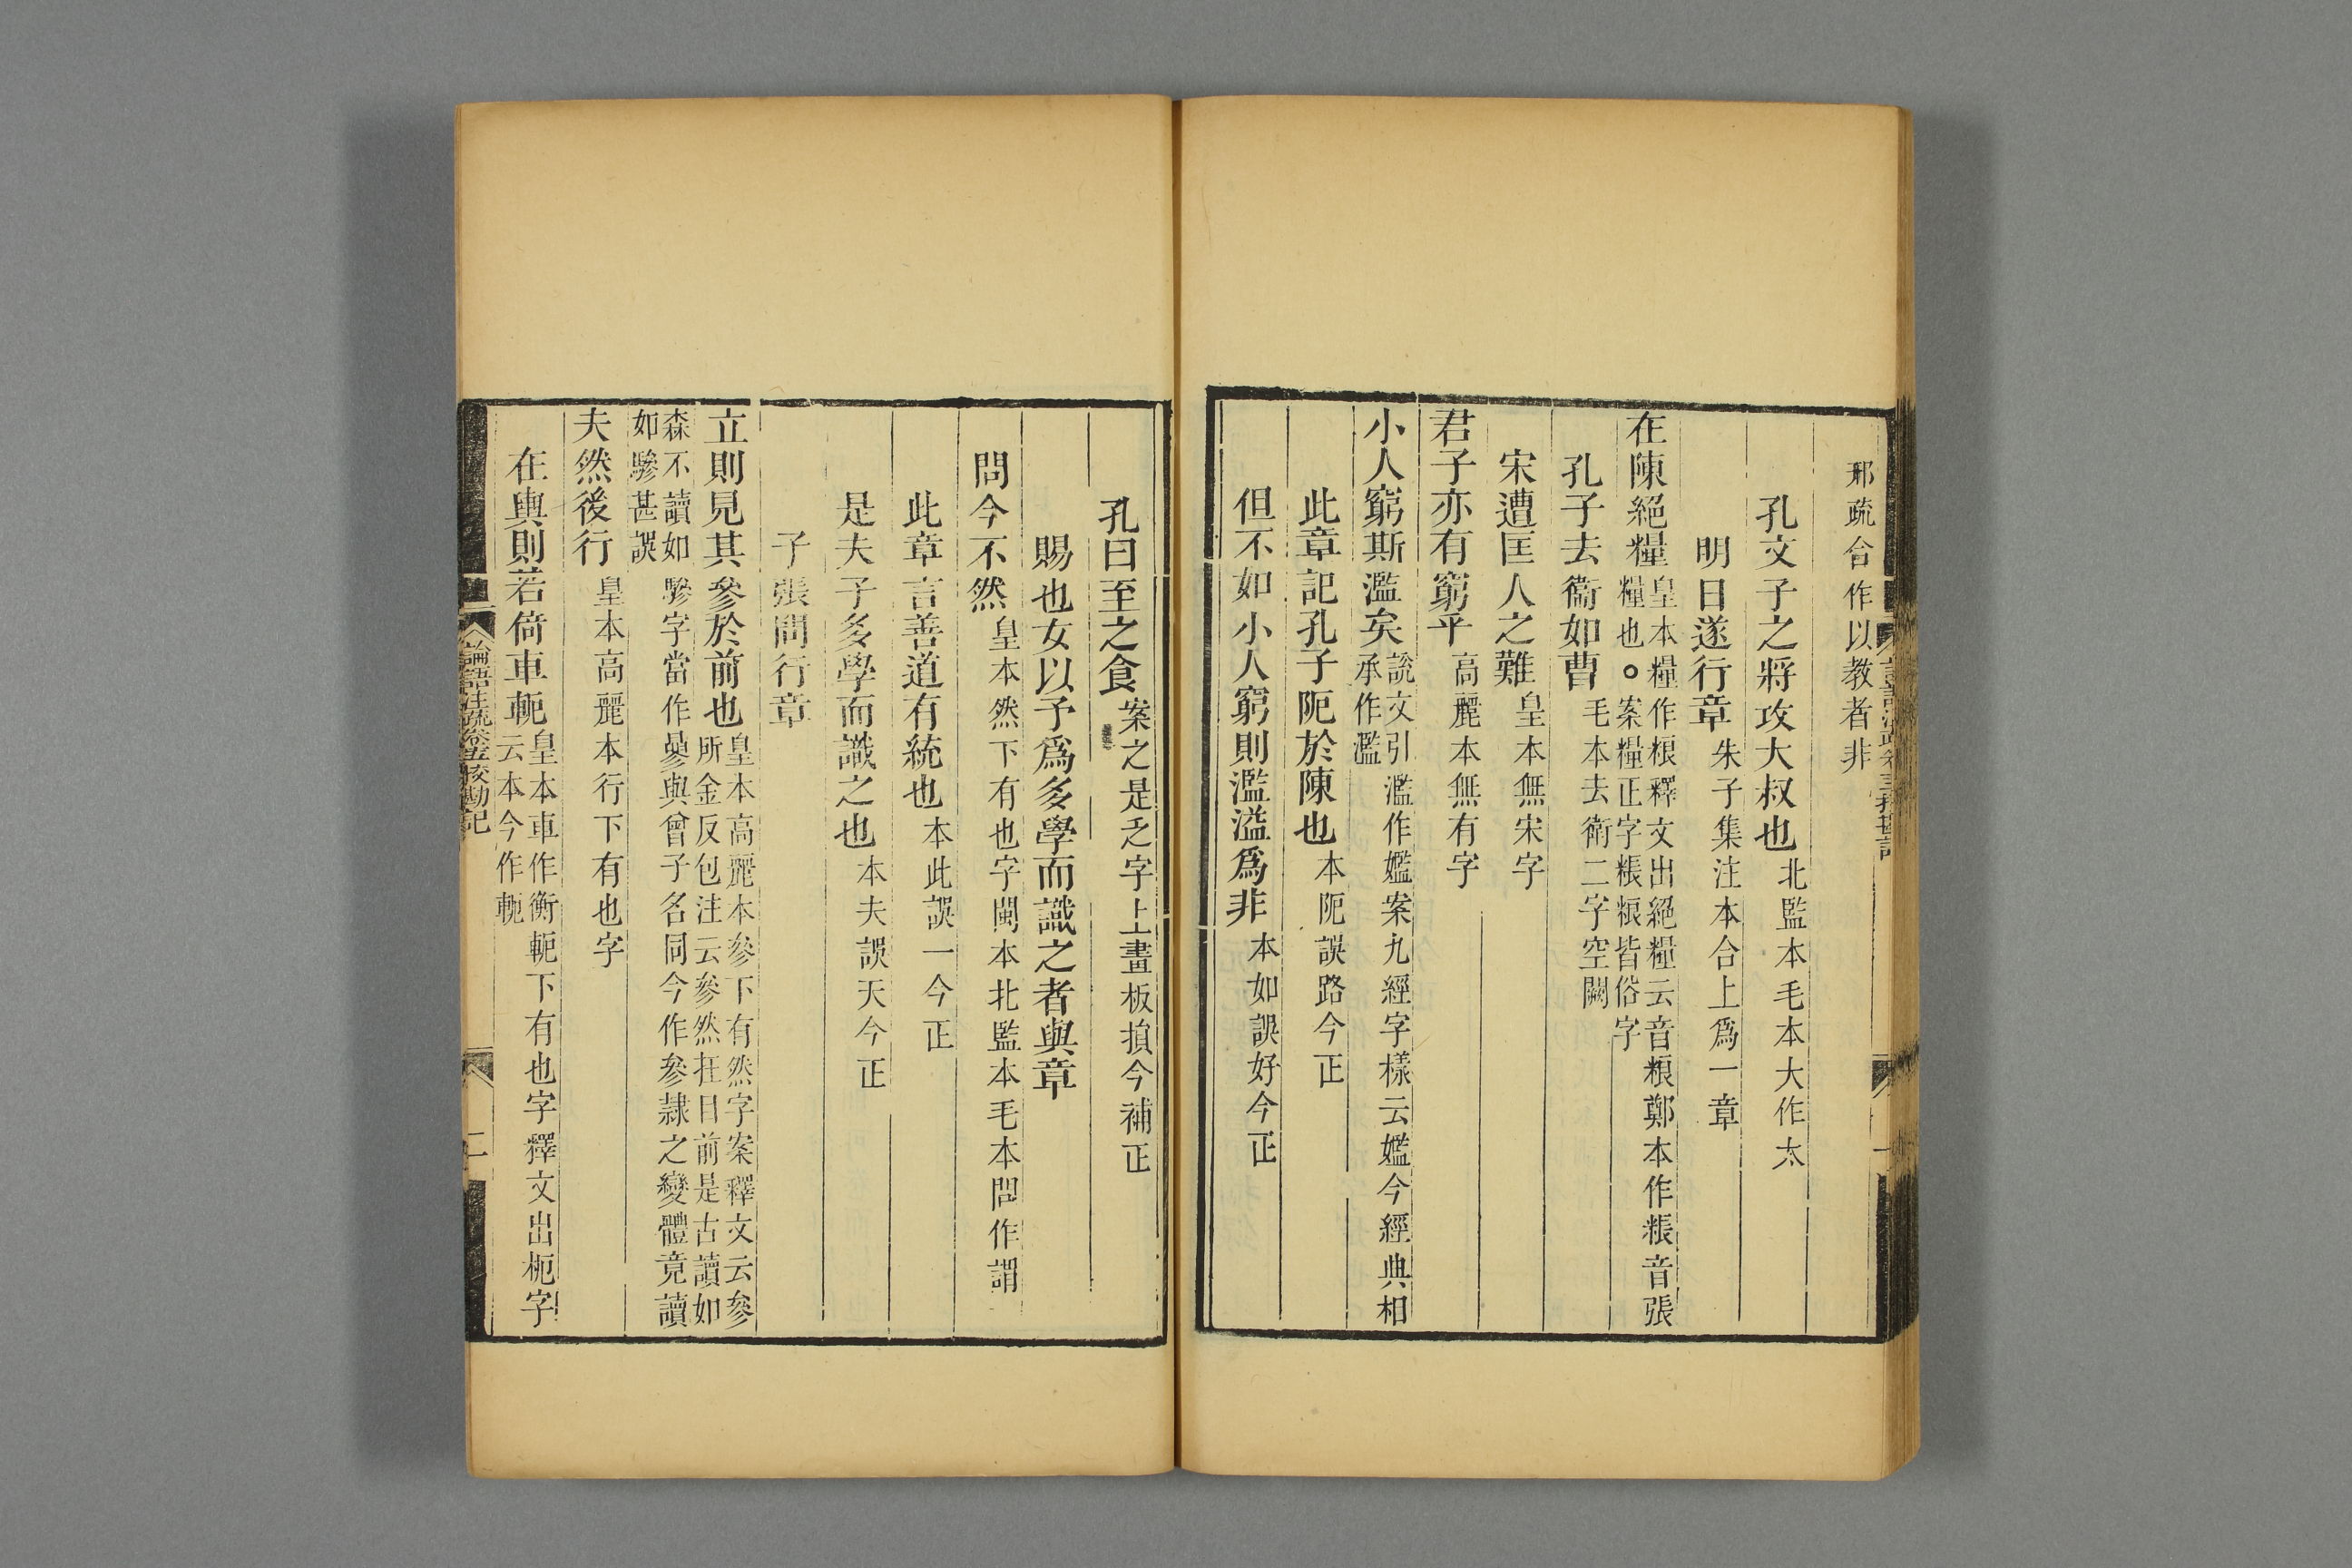 邢疏合作以教者非
孔文子之將攻大叔也北監本毛本大作太
明日遂行章朱子集注本合上爲一章
在陳絕糧皇本糧作粮釋文出絕糧云音粮鄭本作粻音張
糧也○案糧正字粻粮皆俗字
孔子去衞如曹毛本去衛二字空闕
宋遭匡人之難皇本無宋字
君子亦有窮乎高麗本無有字
小人窮斯濫矣說文引濫作㜮案九經字樣云㜮今經典相
承作濫
此章記孔子阨於陳也本阨誤路今正
但不如小人窮則濫溢爲非本如誤好今正
孔曰至之食案之是乏字上畫板損今補正
賜也女以予爲多學而識之者與章
問今不然皇本然下有也字閩本北監本毛本問作謂
此章言善道有統也本此誤一今正
是夫子多學而識之也本夫誤天今正
子張問行章
立則見其參於前也皇本高麗本參下有然字案釋文云參
所金反包注云參然在目前是古讀如
森不讀如驂字當作曑與曾子名同今作參隸之變體竟讀
如驂甚誤
夫然後行皇本高麗本行下有也字
在輿則若倚車軛皇本車作衡軛下有也字釋文出枙字
云本今作軛
論語注疏卷十五校勘記
二